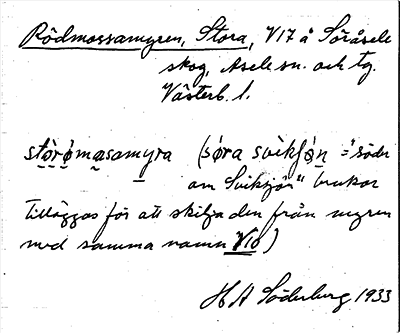 Rödmossamyren, Stora, V17 å Söråsele
skog, Åsele sn. och tg.
Västerb. l.
stòrǿmasamyra (sǿra svikfǿn = "söder
om Sviksjön" brukar
tilläggas för att skilja den från myren
med samma namn V10)
H A Söderberg 1933